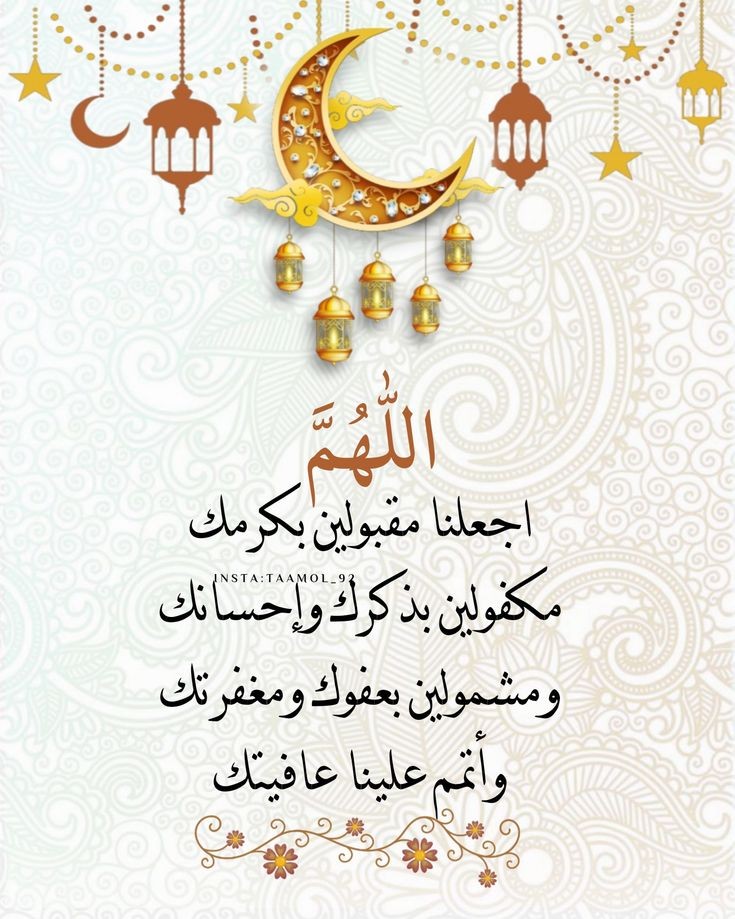 اللّٰهُمَّ
اجعلنا مقبولين بكرمك
INSTA:TAAMOL_92
مكفولين بذكرك وإحسانك
ومشمولين بعفوك ومغفرتك
وأتمم علينا عافيتك